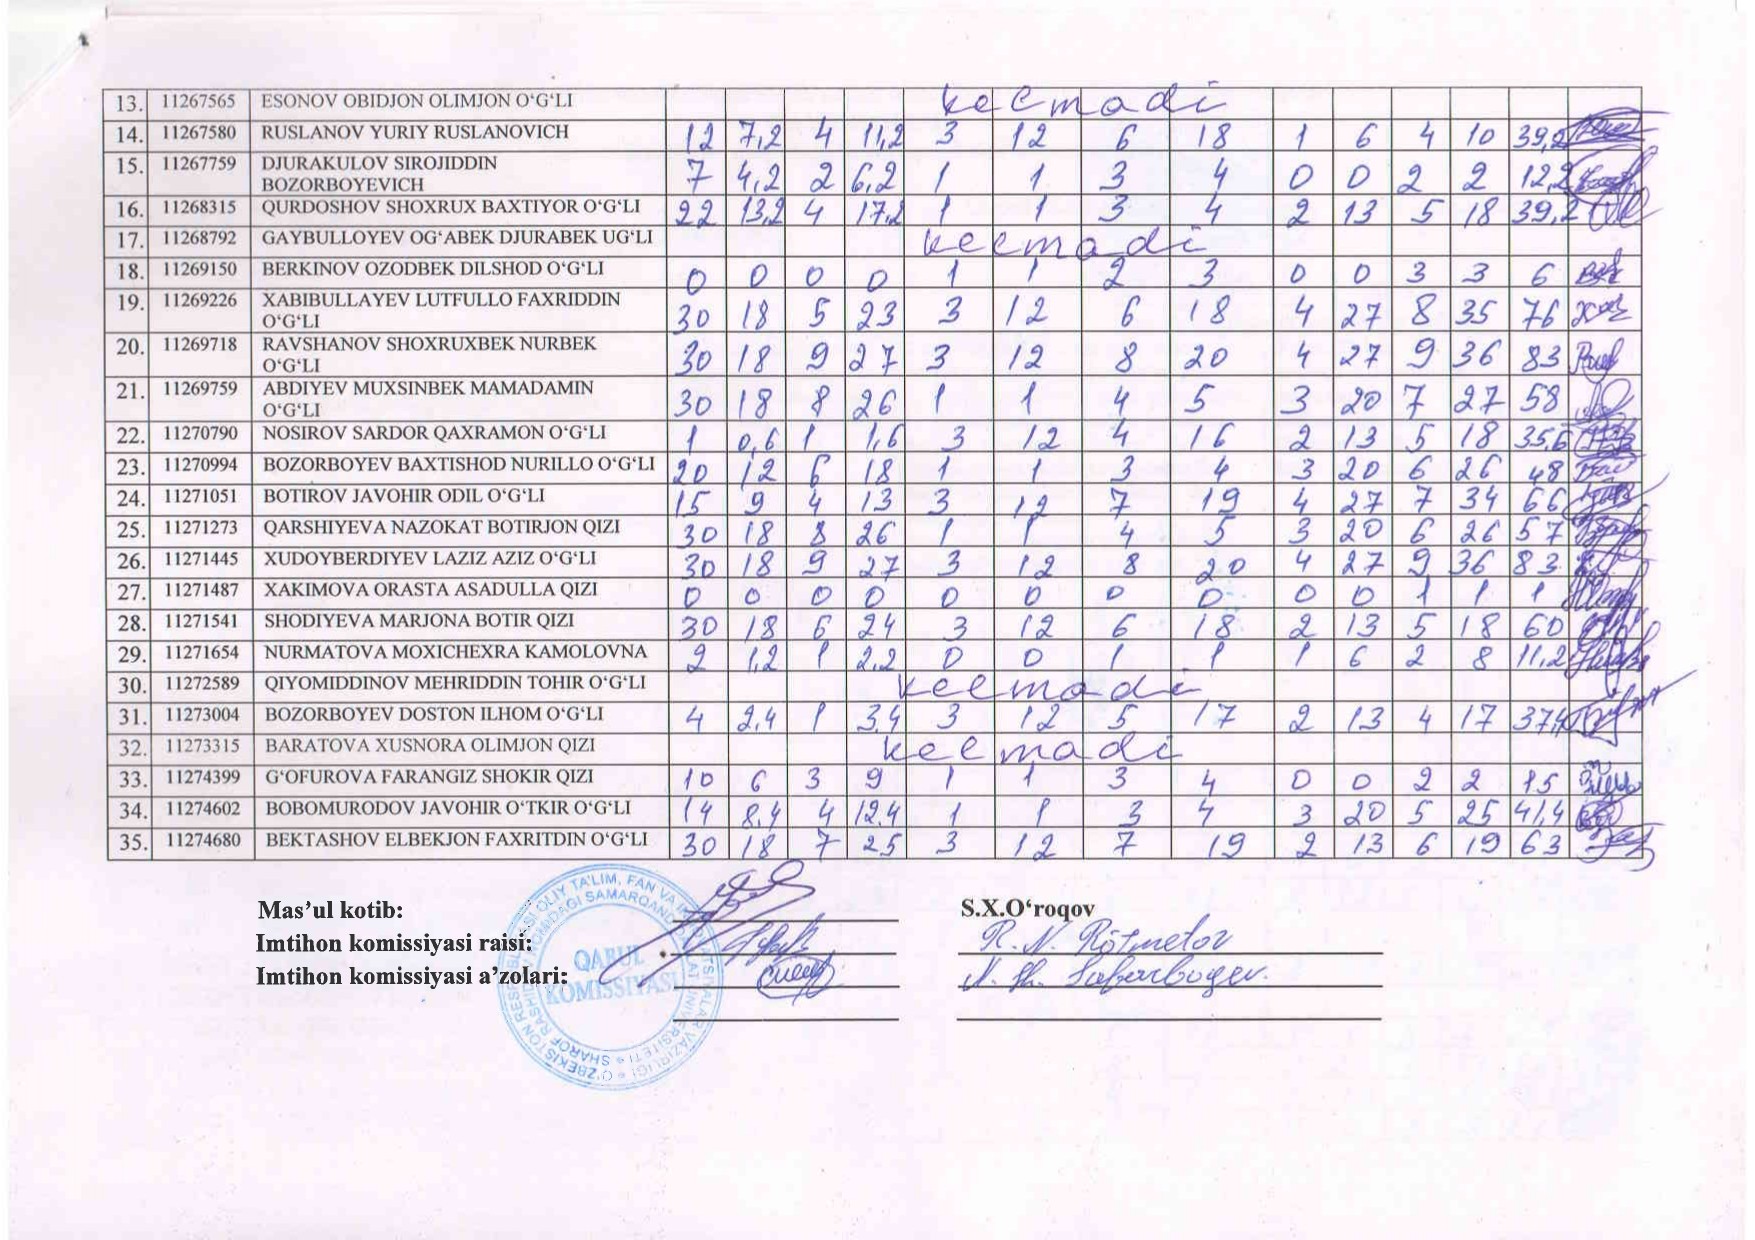 13. 11267565 ESONOV OBIDJON OLIMJON O‘G‘LI kelmadi
14. 11267580 RUSLANOV YURIY RUSLANOVICH 12 7,2 4 11,2 3 12 6 18 1 6 4 10 39,2
15. 11267759 DJURAKULOV SIROJIDDIN 7 4,2 2 6,2 1 1 3 4 0 0 2 2 12,2
BOZORBOYEVICH
16. 11268315 QURDOSHOV SHOXRUX BAXTIYOR O‘G‘LI 22 13,2 4 17,2 1 1 3 4 2 13 5 18 39,2
17. 11268792 GAYBULLOYEV OG‘ABEK DJURABEK UG‘LI kelmadi
18. 11269150 BERKINOV OZODBEK DILSHOD O‘G‘LI 0 0 0 0 1 1 2 3 0 0 3 3 6
19. 11269226 XABIBULLAYEV LUTFULLO FAXRIDDIN 30 18 5 23 3 12 6 18 4 27 8 35 76
O‘G‘LI
20. 11269718 RAVSHANOV SHOXRUXBEK NURBEK 30 18 9 27 3 12 8 20 4 27 9 36 83
O‘G‘LI
21. 11269759 ABDIYEV MUXSINBEK MAMADAMIN 30 18 8 26 1 1 4 5 3 20 7 27 58
O‘G‘LI
22. 11270790 NOSIROV SARDOR QAXRAMON O‘G‘LI 1 0,6 1 1,6 3 12 4 16 2 13 5 18 35,6
23. 11270994 BOZORBOYEV BAXTISHOD NURILLO O‘G‘LI 20 12 6 18 1 1 3 4 3 20 6 26 48
24. 11271051 BOTIROV JAVOHIR ODIL O‘G‘LI 15 9 4 13 3 12 7 19 4 27 7 34 66
25. 11271273 QARSHIYEVA NAZOKAT BOTIRJON QIZI 30 18 8 26 1 1 4 5 3 20 6 26 57
26. 11271445 XUDOYBERDIYEV LAZIZ AZIZ O‘G‘LI 30 18 9 27 3 12 8 20 4 27 9 36 83
27. 11271487 XAKIMOVA ORASTA ASADULLA QIZI 0 0 0 0 0 0 0 0 0 0 1 1 1
28. 11271541 SHODIYEVA MARJONA BOTIR QIZI 30 18 6 24 3 12 6 18 2 13 5 18 60
29. 11271654 NURMATOVA MOXICHEXRA KAMOLOVNA 2 1,2 1 2,2 0 0 1 1 1 6 2 8 11,2
30. 11272589 QIYOMIDDINOV MEHRIDDIN TOHIR O‘G‘LI kelmadi
31. 11273004 BOZORBOYEV DOSTON ILHOM O‘G‘LI 4 2,4 1 3,4 3 12 5 17 2 13 4 17 37,4
32. 11273315 BARATOVA XUSNORA OLIMJON QIZI kelmadi
33. 11274399 G‘OFUROVA FARANGIZ SHOKIR QIZI 10 6 3 9 1 1 3 4 0 0 2 2 15
34. 11274602 BOBOMURODOV JAVOHIR O‘TKIR O‘G‘LI 14 8,4 4 12,4 1 1 3 4 3 20 5 25 41,4
35. 11274680 BEKTASHOV ELBEKJON FAXRITDIN O‘G‘LI 30 18 7 25 3 12 7 19 2 13 6 19 63
Mas’ul kotib: S.X.O‘roqov
Imtihon komissiyasi raisi: R. N.
Imtihon komissiyasi a’zolari: N. Sh.
QABUL
KOMISSIYASI